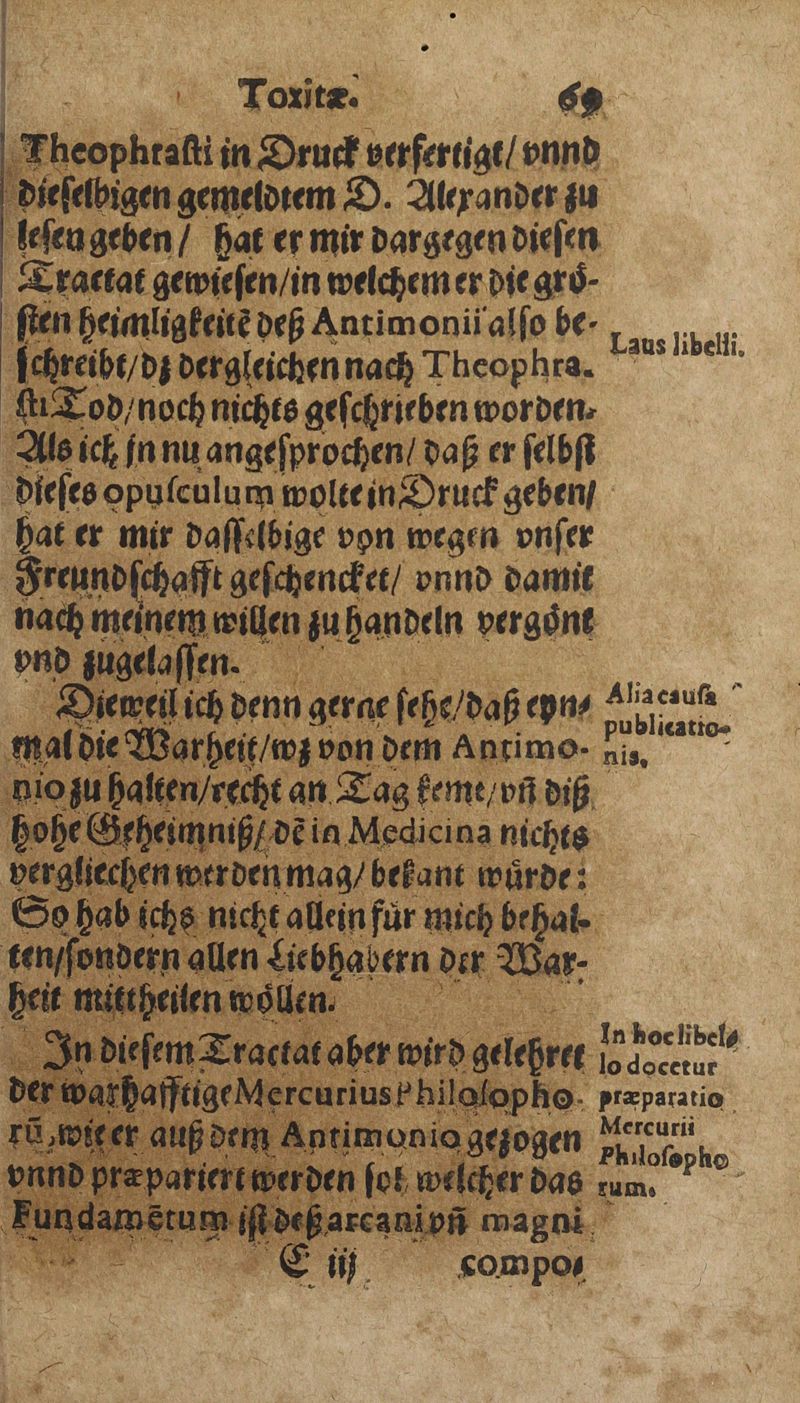 Toxitæ. 69
Theophrasti in Druck verfertigt/ vnnd
dieselbigen gemeldtem D. Alexander zu
lesen geben/ hat er mir dargegen diesen
Tractat gewiesen/in welchem er die grö-
sten heimligkeitē deß Antimonii also be-
schreibt/dz dergleichen nach Theophra-
sti Tod/noch nichts geschrieben worden.
Als ich jn nu angesprochen/ daß er selbst
dieses opusculum wolte in Druck geben/
hat er mir dasselbige von wegen vnser
Freundschafft geschencket/ vnnd damit
nach meinem willen zu handeln vergönt
vnd zugelassen.
Laus libelli.
Dieweil ich denn gerne sehe/daß eyn-
mal die Warheit/wz von dem Antimo-
nio zu halten/recht an Tag keme/vñ diß
hohe Geheimniß/ dē in Medicina nichts
vergliechen werden mag/ bekant würde:
So hab ichs nicht allein für mich behal-
ten/sondern allen Liebhabern der War-
heit mittheilen wöllen.
Alia causa
publicatio-
nis.
In diesem Tractat aber wird gelehret
der warhafftige Mercurius Philosopho-
rū, wie er auß dem Antimonio gezogen
vnnd præpariert werden sol, welcher das
Fundamētum ist deß arcani vñ magni
In hoc libel-
lo docetur
præparatio
Mercurii
Philosopho
rum.
E iij compo-